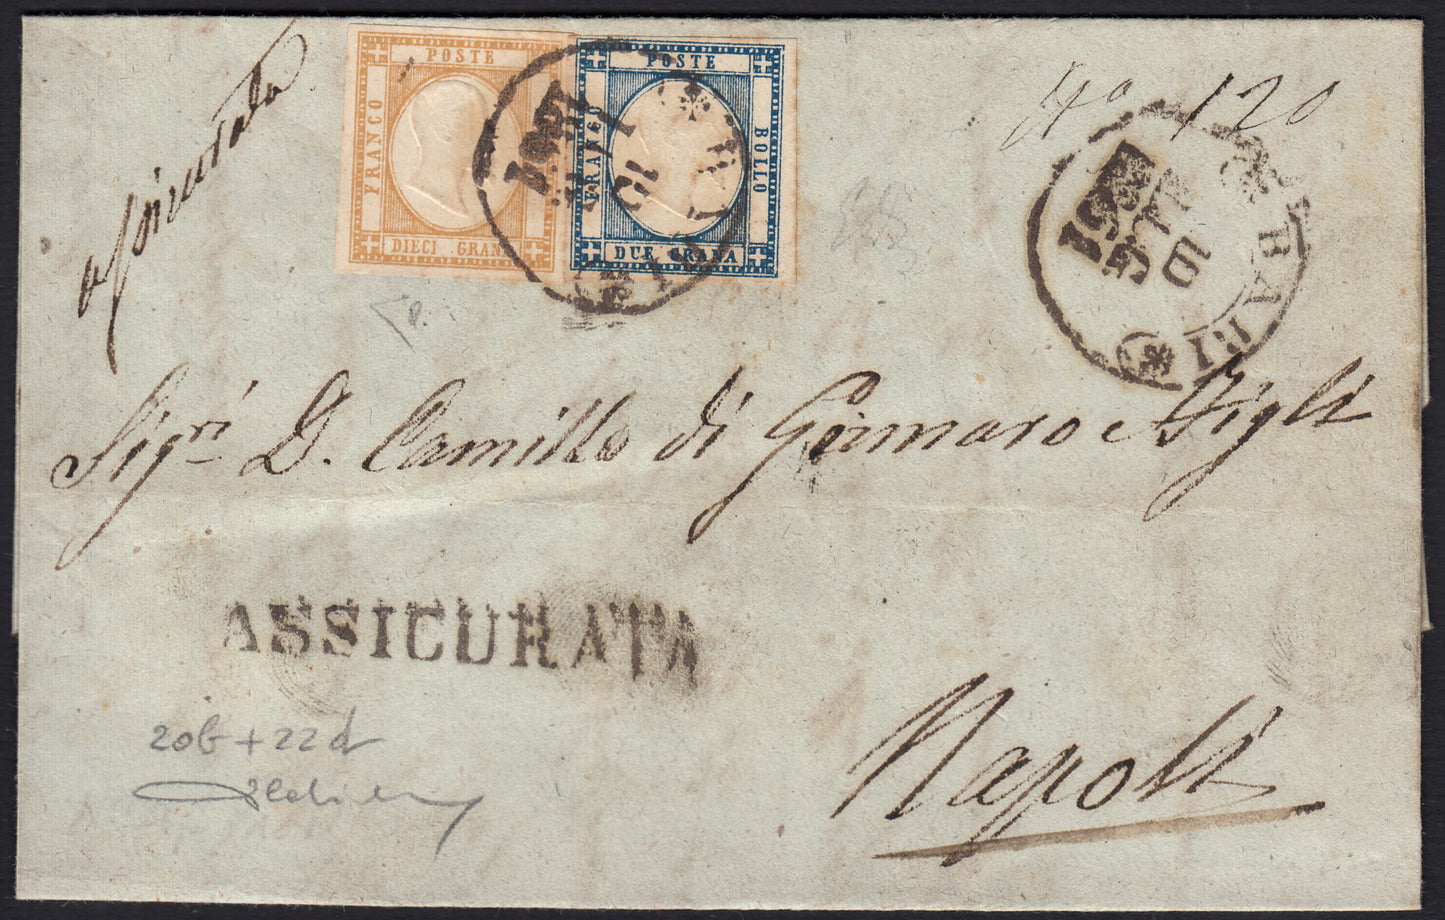 assicurata
POSTE
FRANCO
DIECI GRANA
POSTE
FRANCO
BOLLO
DUE GRANA
BARI
1861
15
No 120
BARI
1861
Sig.ri D. Camillo di Gennaro e Figli
ASSICURATA
Napoli
20b + 22d